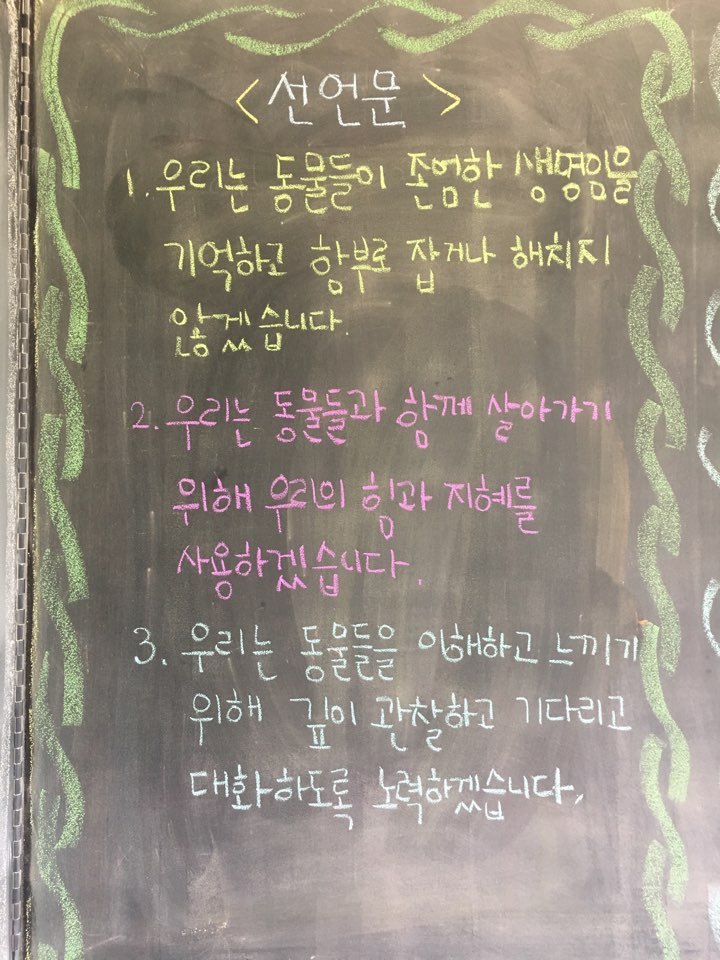 <선언문>
1. 우리는 동물들이 존엄한 생명임을
기억하고 함부로 잡거나 해치지
않겠습니다.
2. 우리는 동물들과 함께 살아가기
위해 우리의 힘과 지혜를
사용하겠습니다.
3. 우리는 동물들을 이해하고 느끼기
위해 깊이 관찰하고 기다리고
대화하도록 노력하겠습니다.